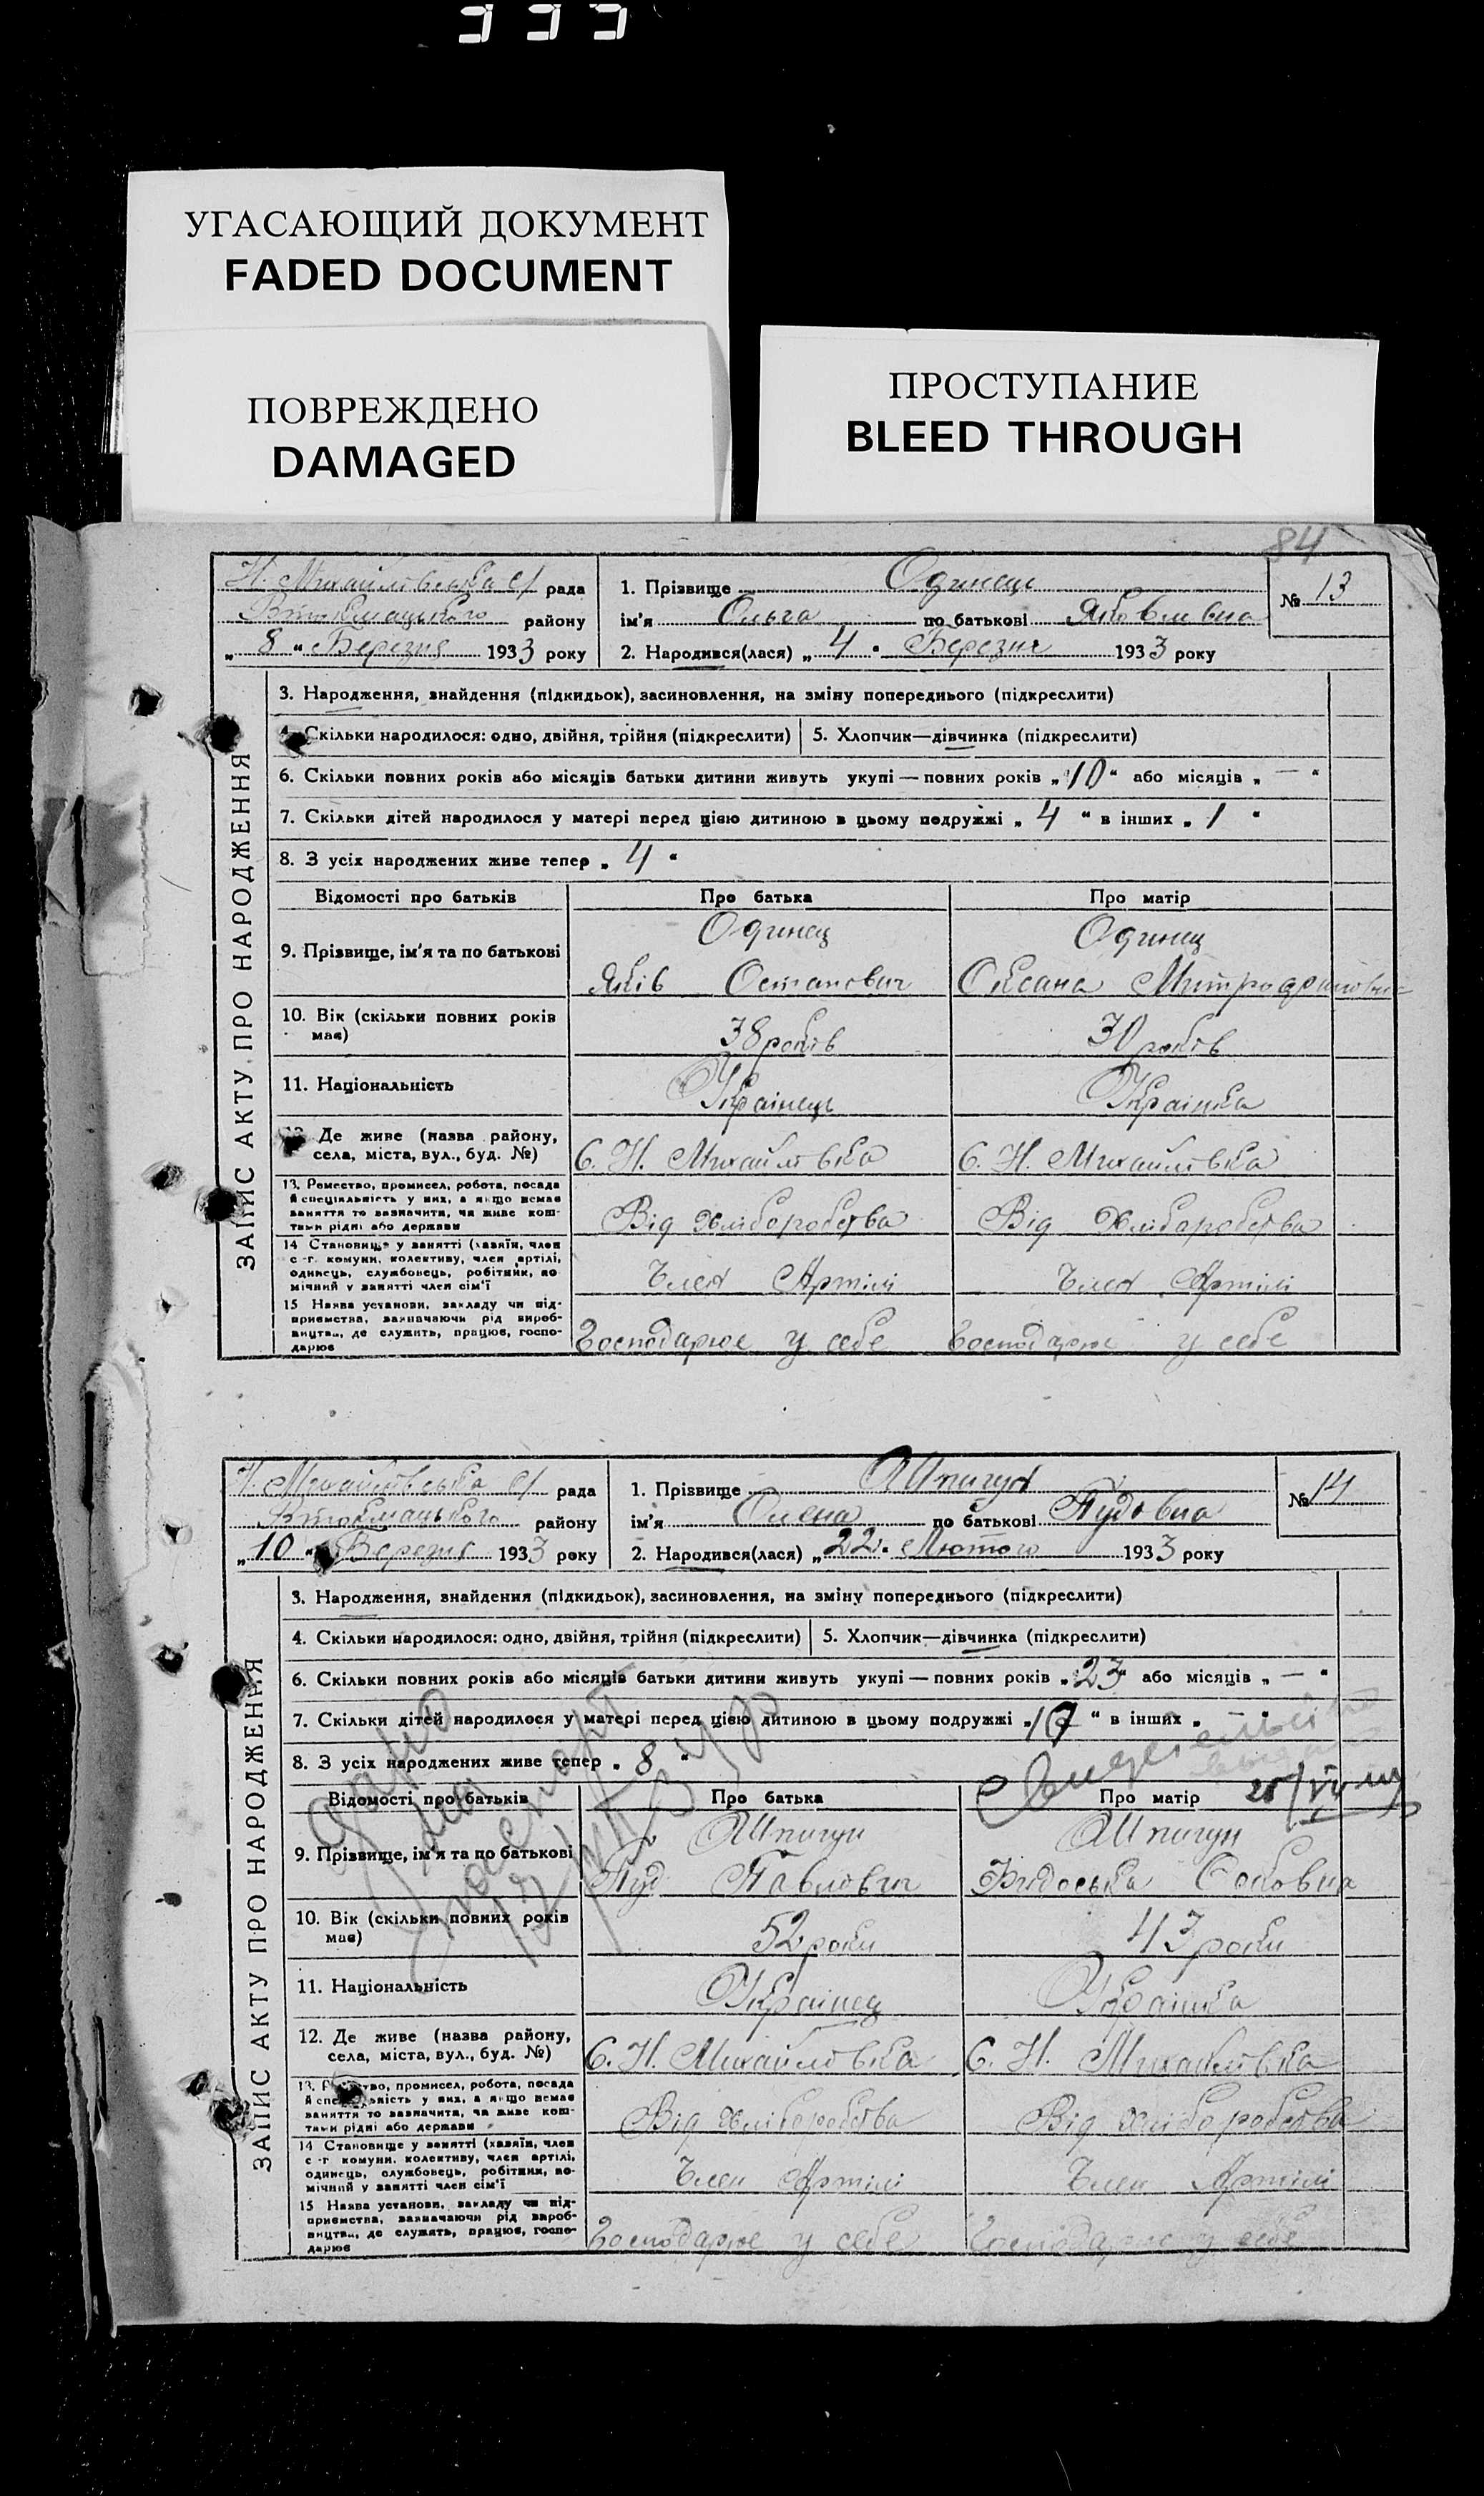 333
УГАСАЮЩИЙ ДОКУМЕНТ
FADED DOCUMENT
ПОВРЕЖДЕНО
DAMAGED
ПРОСТУПАНИЕ
BLEED THROUGH
84
Н. Михайлівська с/ рада
району
„ 8 “ Березня 1933 року
1. Прізвище Одинець
№ 13
ім'я Ольга по батькові Яковлівна
2. Народився(лася) „ 4 “ Березня 1933 року
ЗАПИС АКТУ ПРО НАРОДЖЕННЯ
3. Народження, знайдення (підкидьок), засиновлення, на зміну попереднього (підкреслити)
4. Скільки народилося: одно, двійня, трійня (підкреслити) 5. Хлопчик—дівчинка (підкреслити)
6. Скільки повних років або місяців батьки дитини живуть укупі — повних років „ 10 “ або місяців „ — “
7. Скільки дітей народилося у матері перед цією дитиною в цьому подружжі „ 4 “ в інших „ 1 “
8. З усіх народжених живе тепер „ 4 “
Відомості про батьків Про батька Про матір
9. Прізвище, ім'я та по батькові
Одинец Одинец
Яків Остапович Оксана Митрофановна
10. Вік (скільки повних років має)
38 років 30 років
11. Національність
Українець Українка
12. Де живе (назва району, села, міста, вул., буд. №)
С. Н. Михайлівка С. Н. Михайлівка
13. Ремество, промисел, робота, посада й спеціяльність у них, а якщо немає заняття то зазначити, чи живе коштами рідні або держави
Від хліборобства Від хліборобства
14 Становище у занятті (хазяїн, член с.-г. комуни, колективу, член артілі, одинець, службовець, робітник, помічний у занятті член сім'ї
Член Артілі Член Артілі
15 Назва установи, закладу чи підприємства, зазначаючи рід виробництва, де служить, працює, господарює
Господарює у себе Господарює у себе
Н. Михайлівська с/ рада
району
„ 10 “ Березня 1933 року
1. Прізвище Шпигун
№ 14
ім'я Олена по батькові Пудовна
2. Народився(лася) „ 22 “ Лютого 1933 року
ЗАПИС АКТУ ПРО НАРОДЖЕННЯ
3. Народження, знайдення (підкидьок), засиновлення, на зміну попереднього (підкреслити)
4. Скільки народилося: одно, двійня, трійня (підкреслити) 5. Хлопчик—дівчинка (підкреслити)
6. Скільки повних років або місяців батьки дитини живуть укупі — повних років „ 23 “ або місяців „ — “
7. Скільки дітей народилося у матері перед цією дитиною в цьому подружжі „ “ в інших „ “
8. З усіх народжених живе тепер „ 8 “
Відомості про батьків Про батька Про матір
9. Прізвище, ім'я та по батькові
Шпигун Шпигун
Пуд Павлович
10. Вік (скільки повних років має)
52 роки 43 роки
11. Національність
Українец Українка
12. Де живе (назва району, села, міста, вул., буд. №)
С. Н. Михайлівка С. Н. Михайлівка
13. Ремество, промисел, робота, посада й спеціяльність у них, а якщо немає заняття то зазначити, чи живе коштами рідні або держави
Від хліборобства Від хліборобства
14 Становище у занятті (хазяїн, член с.-г. комуни, колективу, член артілі, одинець, службовець, робітник, помічний у занятті член сім'ї
Член Артілі Член Артілі
15 Назва установи, закладу чи підприємства, зазначаючи рід виробництва, де служить, працює, господарює
Господарює у себе Господарює у себе